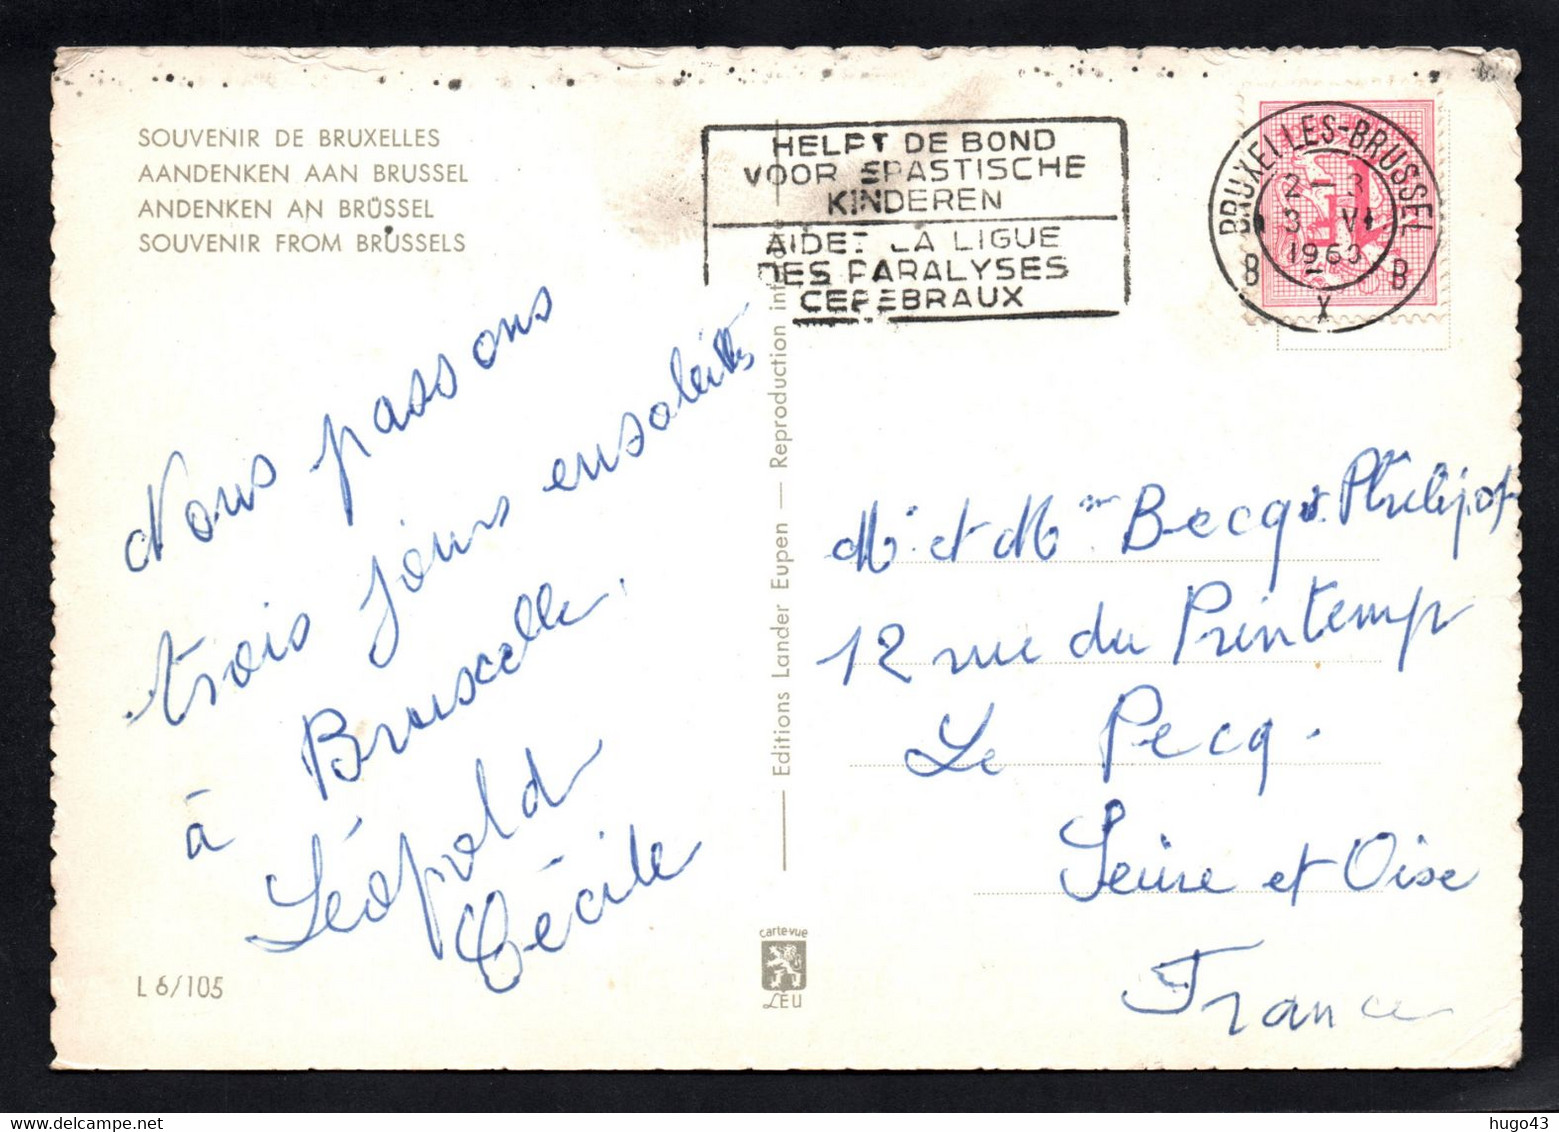 SOUVENIR DE BRUXELLES
AANDENKEN AAN BRUSSEL
ANDENKEN AN BRÜSSEL
SOUVENIR FROM BRUSSELS
Nous passons
trois jours ensoleillés
à Bruxelles,
Léopold
Cécile
L 6/105
Editions Lander Eupen — Reproduction interdite
carte-vue
LEU
HELPT DE BOND
VOOR SPASTISCHE
KINDEREN
AIDEZ LA LIGUE
DES PARALYSES
CEREBRAUX
BRUXELLES-BRUSSEL
3 VI
1960
B X B
Mr. et Mme Becq
12 rue du Printemp
Le Pecq.
Seine et Oise
France
hugo43